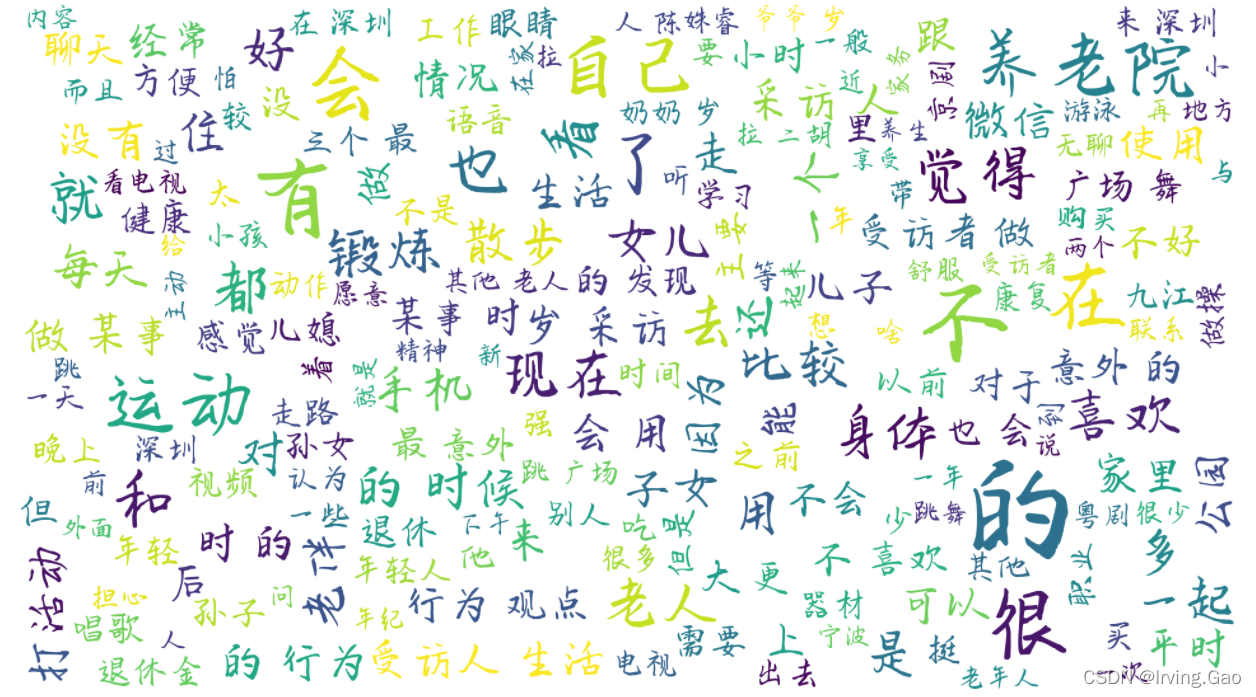 内容
在 深圳
工作
眼睛
人 陈姝睿
爷爷 岁
来 深圳
聊天
经常
好
会
情况
在 家
拉
自己
要
小时
一般
跟
养老院
小
而且
方便
怕
没
语音
看
奶奶 岁
采访 人
近
家务
京剧
微信
游泳
再
地方
没有
过
住
较
三个 最
也
了
走
拉 二胡
里
养生
无聊
使用
就
看电视
太
有
做
生活
听
学习
一个
享受
带
觉得
广场 舞
与
健康
给
小孩
不是
散步
女儿
主要
年
受访者 做
购买
两个
不好
每天
都
动作
锻炼
愿意
其他 老人
的 发现
等
起来
儿子
舒服
受访者
康复
在
九江
联系
做操
做 某事
主动
感觉
儿媳
某事 时
岁 采访
去
还
想
啥
不
跳
着
精神
新
现在
时间
比较
以前
对于
意外 的
一天
运动
走路
就是
手机
强
会 用
因为
能
身体
也 会
到
说
喜欢
晚上
深圳
对
孙女
最 意外
之前
前
和
视频
认为
的 时候
跳 广场
子女
用
不会
一年
的
家里
公园
但
外面
一些
退休
下午
别人
吃
但是
少
跳舞
粤剧
很少
打
活动
年轻
时 的
老伴
年轻人
他
来
很多
大
更
不 喜欢
其他
职业
多
担心
后
孙子
问
年纪
行为 观点
老人
器材
可以
很
一起
唱歌
人
退休金
的 行为
受访人 生活
电视
需要
上
出去
宁波
是
挺
老年人
买
平时
一次
CSDN @Irving.Gao